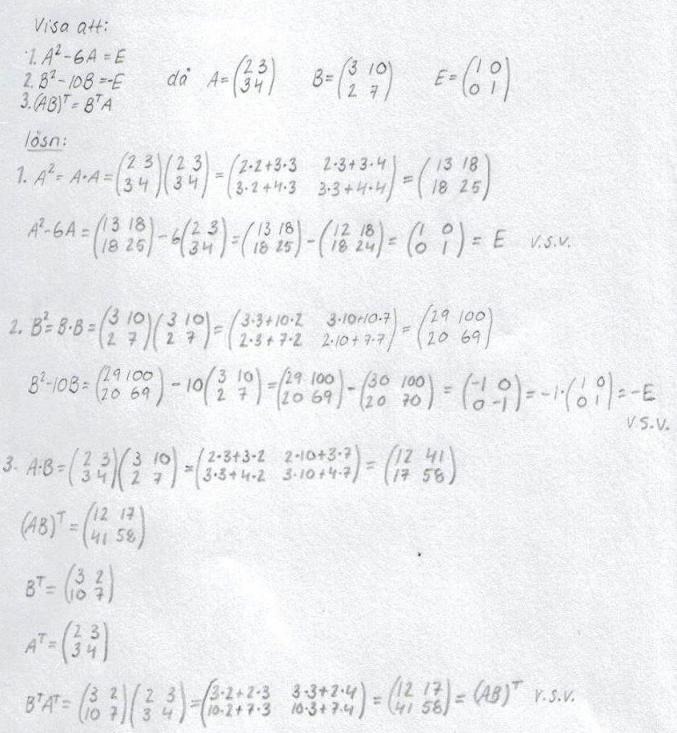 Visa att:
1. A²-6A = E
2. B²-10B = -E
3. (AB)ᵀ = BᵀA
då A = (2 3; 3 4) B = (3 10; 2 7) E = (1 0; 0 1)
lösn:
1. A² = A·A = (2 3; 3 4)(2 3; 3 4) = (2·2+3·3 2·3+3·4; 3·2+4·3 3·3+4·4) = (13 18; 18 25)
A²-6A = (13 18; 18 25) - 6(2 3; 3 4) = (13 18; 18 25) - (12 18; 18 24) = (1 0; 0 1) = E v.s.v.
2. B² = B·B = (3 10; 2 7)(3 10; 2 7) = (3·3+10·2 3·10+10·7; 2·3+7·2 2·10+7·7) = (29 100; 20 69)
B²-10B = (29 100; 20 69) - 10(3 10; 2 7) = (29 100; 20 69) - (30 100; 20 70) = (-1 0; 0 -1) = -1·(1 0; 0 1) = -E
v.s.v.
3. A·B = (2 3; 3 4)(3 10; 2 7) = (2·3+3·2 2·10+3·7; 3·3+4·2 3·10+4·7) = (12 41; 17 58)
(AB)ᵀ = (12 17; 41 58)
Bᵀ = (3 2; 10 7)
Aᵀ = (2 3; 3 4)
BᵀAᵀ = (3 2; 10 7)(2 3; 3 4) = (3·2+2·3 3·3+2·4; 10·2+7·3 10·3+7·4) = (12 17; 41 58) = (AB)ᵀ v.s.v.